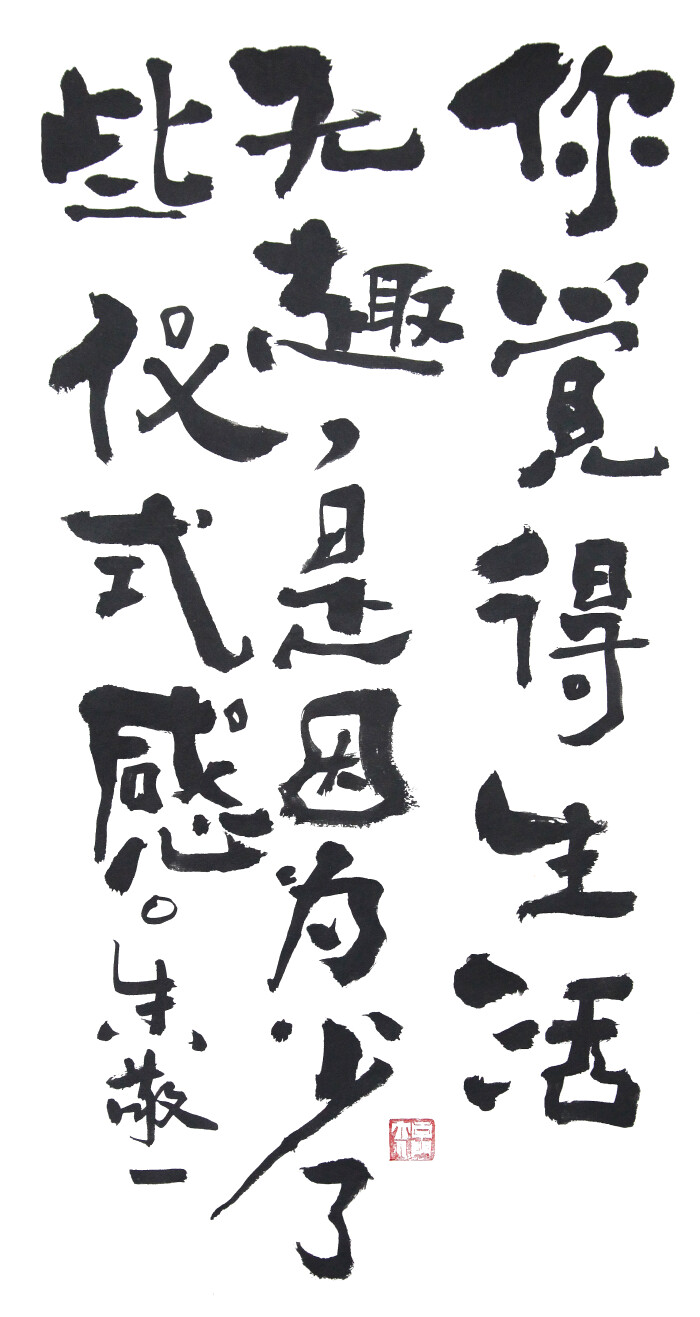 你覺得生活
无趣，是因为少了
些仪式感。朱敬一